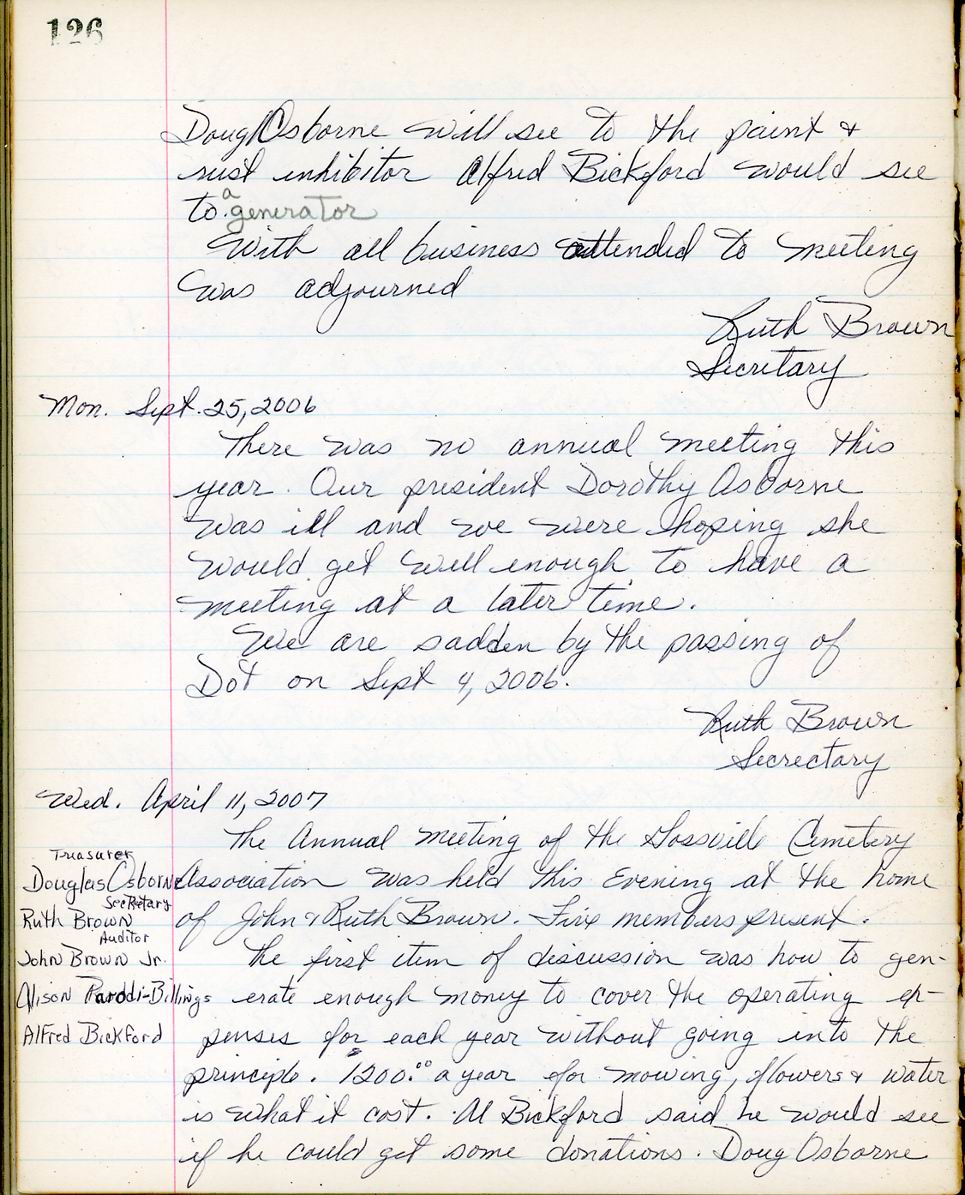 126
Doug Osborne will see to the paint &
rust inhibitor Alfred Bickford would see
to a generator
With all business attended to meeting
was adjourned
Ruth Brown
Secretary
Mon. Sept. 25, 2006
There was no annual meeting this
year. Our president Dorothy Osborne
was ill and we were hoping she
would get well enough to have a
meeting at a later time.
We are sadden by the passing of
Dot on Sept 4, 2006.
Ruth Brown
Secrectary
Wed. April 11, 2007
The Annual meeting of the Gossville Cemetery
Association was held this Evening at the home
of John & Ruth Brown. Five members present.
The first item of discussion was how to gen-
erate enough money to cover the operating ex-
penses for each year without going into the
principle. $1200.00 a year for mowing, flowers & water
is what it cost. Al Bickford said he would see
if he could get some donations. Doug Osborne
Treasurer
Douglas Osborne
Secretary
Ruth Brown
Auditor
John Brown Jr.
Alison Parodi-Billings
Alfred Bickford